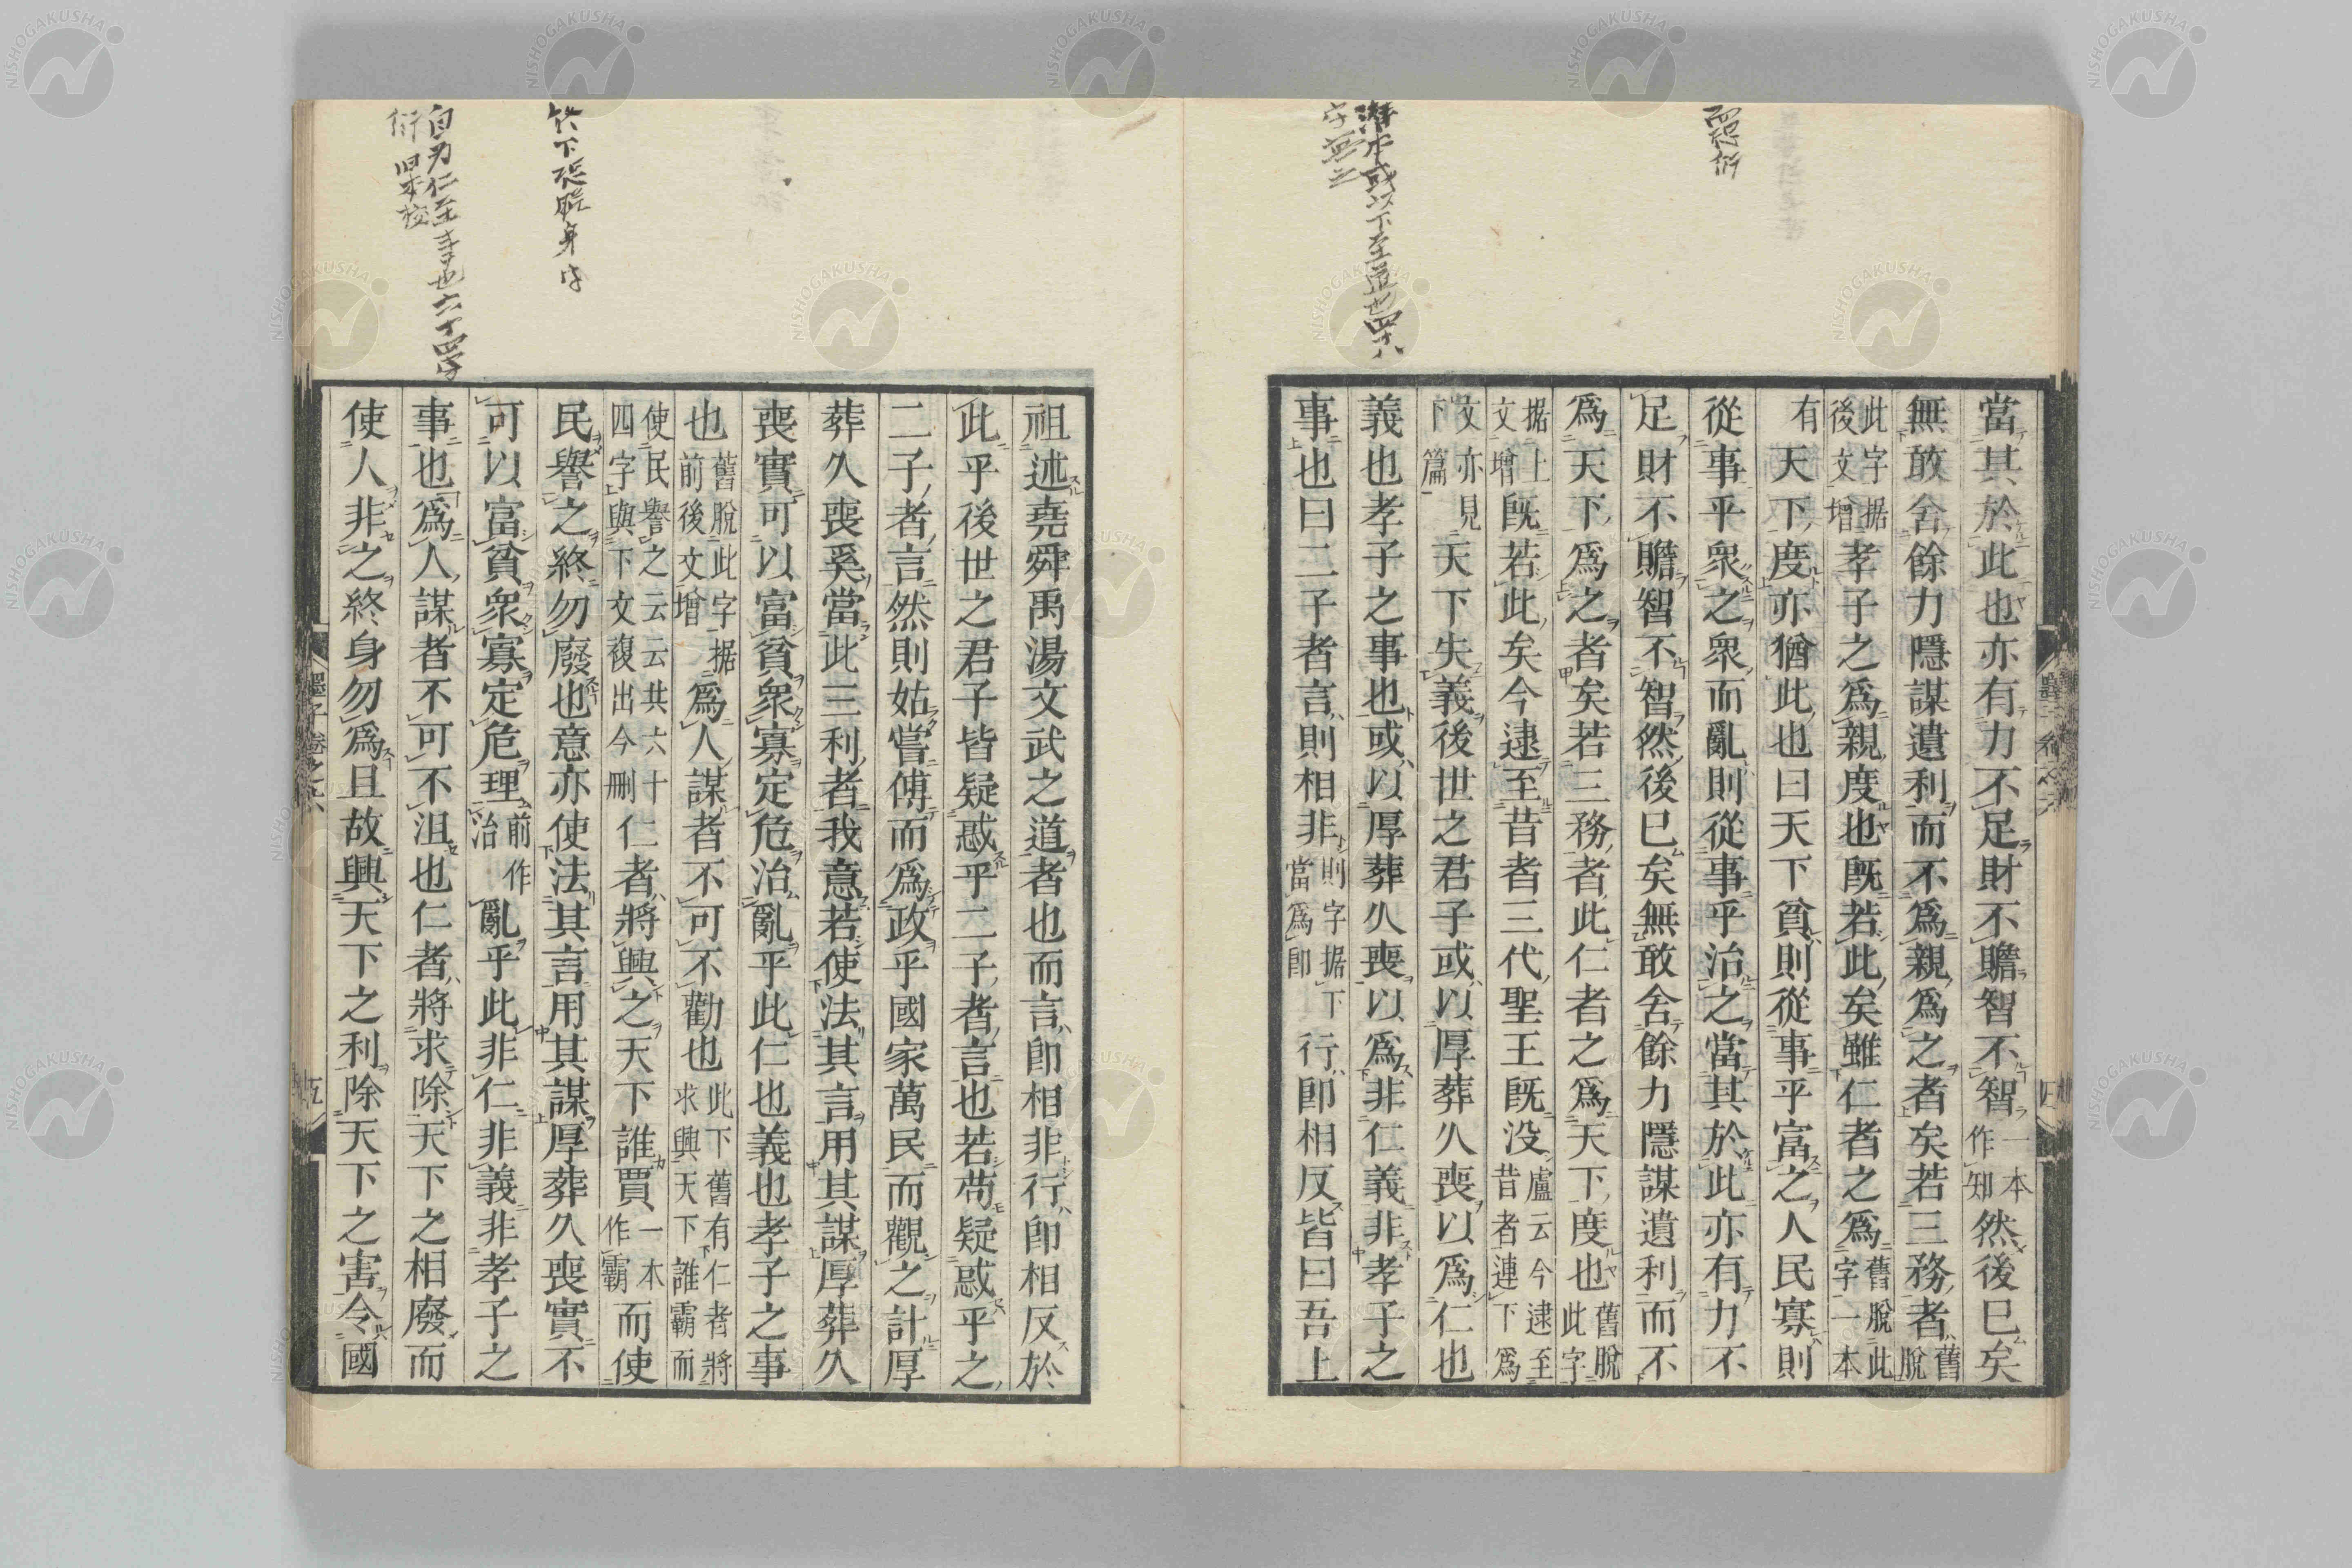 當其於此也亦有力不足財不贍智不智一本作知然後已矣
無敢舍餘力隱謀遺利而不爲親爲之者矣若三務者舊脫
此字据後文增孝子之爲親度也旣若此矣雖仁者之爲舊脫此字一本
有天下度亦猶此也曰天下貧則從事乎富之人民寡則
從事乎衆之衆而亂則從事乎治之當其於此亦有力不
足財不贍智不智然後已矣無敢舍餘力隱謀遺利而不
爲天下爲之者矣若三務者此仁者之爲天下度也舊脫此字
据上文增旣若此矣今逮至昔者三代聖王旣没盧云今逮至昔者連下爲
文亦見下篇天下失義後世之君子或以厚葬久喪以爲仁也
義也孝子之事也或以厚葬久喪以爲非仁義非孝子之
事也曰二子者言則相非則字据下當爲卽行卽相反皆曰吾上
本或以下至道也四十八
字無之
祖述堯舜禹湯文武之道者也而言卽相非行卽相反於
此乎後世之君子皆疑惑乎二子者言也若苟疑惑乎之
二子者言然則姑嘗傅而爲政乎國家萬民而觀之計厚
葬久喪奚當此三利者我意若使法其言用其謀厚葬久
喪實可以富貧衆寡定危治亂乎此仁也義也孝子之事
也舊脫此字据前後文增爲人謀者不可不勸也此下舊有仁者將求興天下誰霸而
使民譽之云云共六十四字與下文複出今刪仁者將興之天下誰賈一本作霸而使
民譽之終勿廢也意亦使法其言用其謀厚葬久喪實不
可以富貧衆寡定危理前作治亂乎此非仁非義非孝子之
事也爲人謀者不可不沮也仁者將求除天下之相廢而
使人非之終身勿爲且故興天下之利除天下之害令國
終下恐脱身字
自为仁至事也六十四字
衍 畢本校
墨子卷之六
五
NISHOGAKUSHA